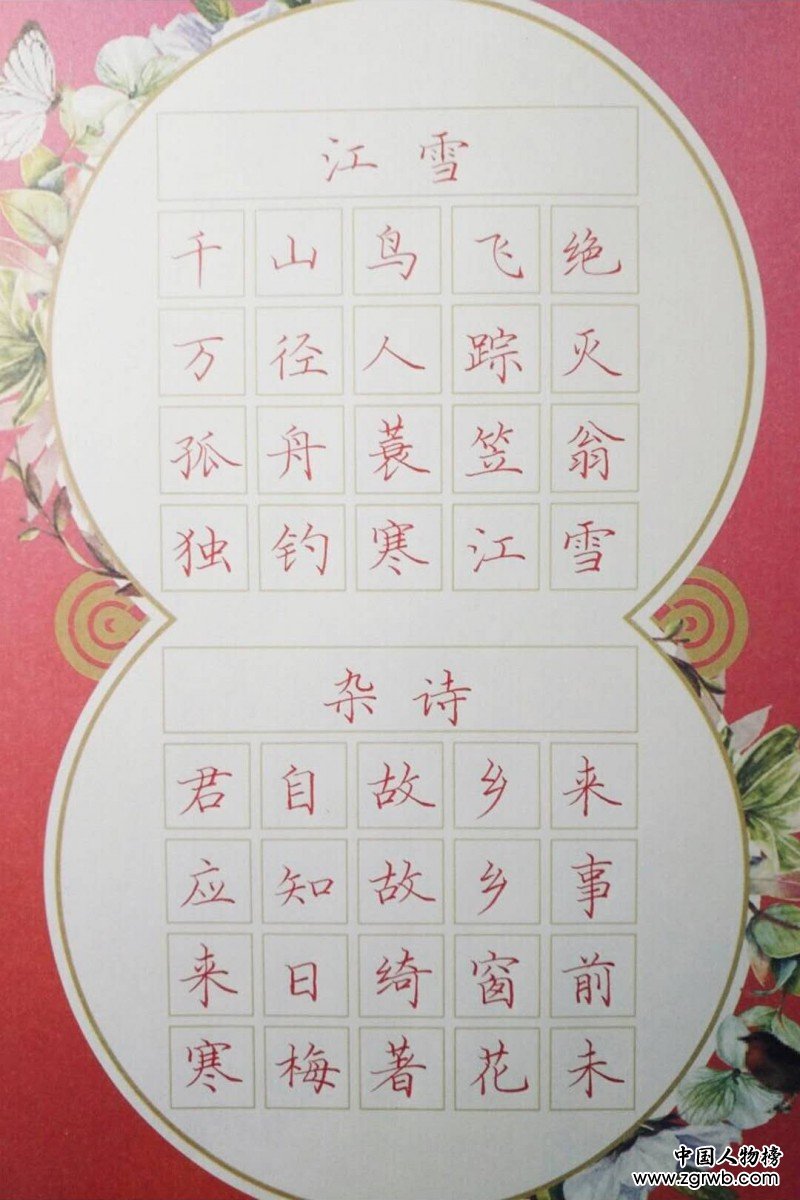 江雪
千山鸟飞绝
万径人踪灭
孤舟蓑笠翁
独钓寒江雪
杂诗
君自故乡来
应知故乡事
来日绮窗前
寒梅著花未
中国人物榜
www.zgrwb.com